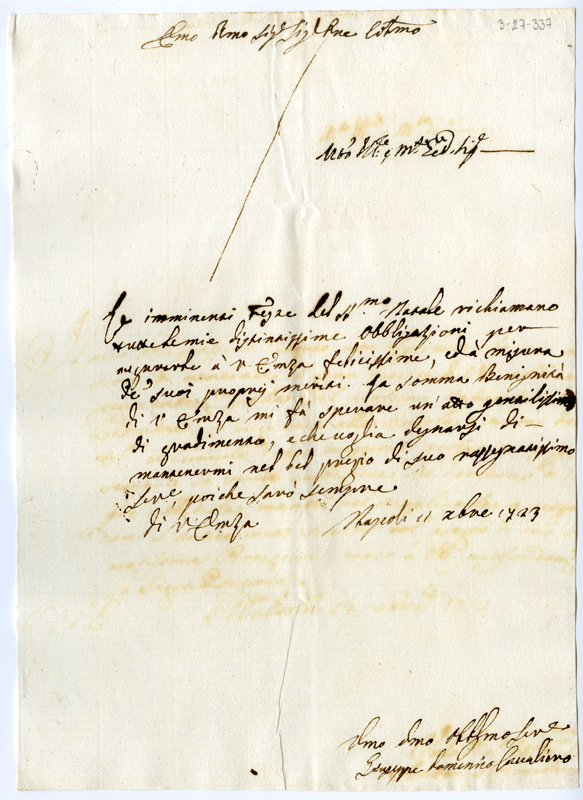 3-27-337
Emo Rmo Sigr Sigr Pne Colmo
Le imminenti Feste del SSmo Natale richiamano
tutte le mie distintissime obbligazioni per
augurarle à V Emza felicissime, ed à misura
de' suoi proprij meriti. La somma Benignità
di V Emza mi fà sperare un' atto gentilissimo
di gradimento, e che voglia degnarsi di
mantenermi nel bel pregio di suo rassegnatissimo
serre, poiche sarò sempre
di V Emza Napoli 11 xbre 1723
Umo Dmo Obblmo Serre
Giuseppe Domenico Cavaliero